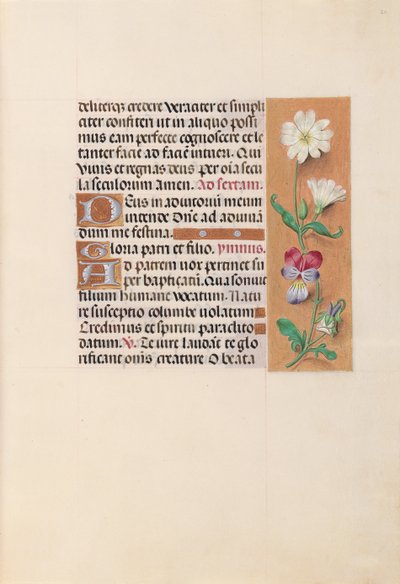 deliterqꝫ credere veraciter et simpli
citer confiteri ut in aliquo possi
mus eam perfecte cognoscere et le
tanter facie ad faciē intueri. Qui
vivis et regnas deus per oīa secu
la seculorum amen. Ad sextam.
Deus in adiutoriū meum
intende Dn̄e ad adiuvā
dum me festina.
Gloria patri et filio. ymnus.
Ad patrem vox pertinet su
per baptizatū. Qua sonuit
filium humane vocatum. Natu
re susceptio columbe volatum
Credimus et spiritū paraclito
datum. V. Te iure laudāt te glo
rificant om̄s creature O beata